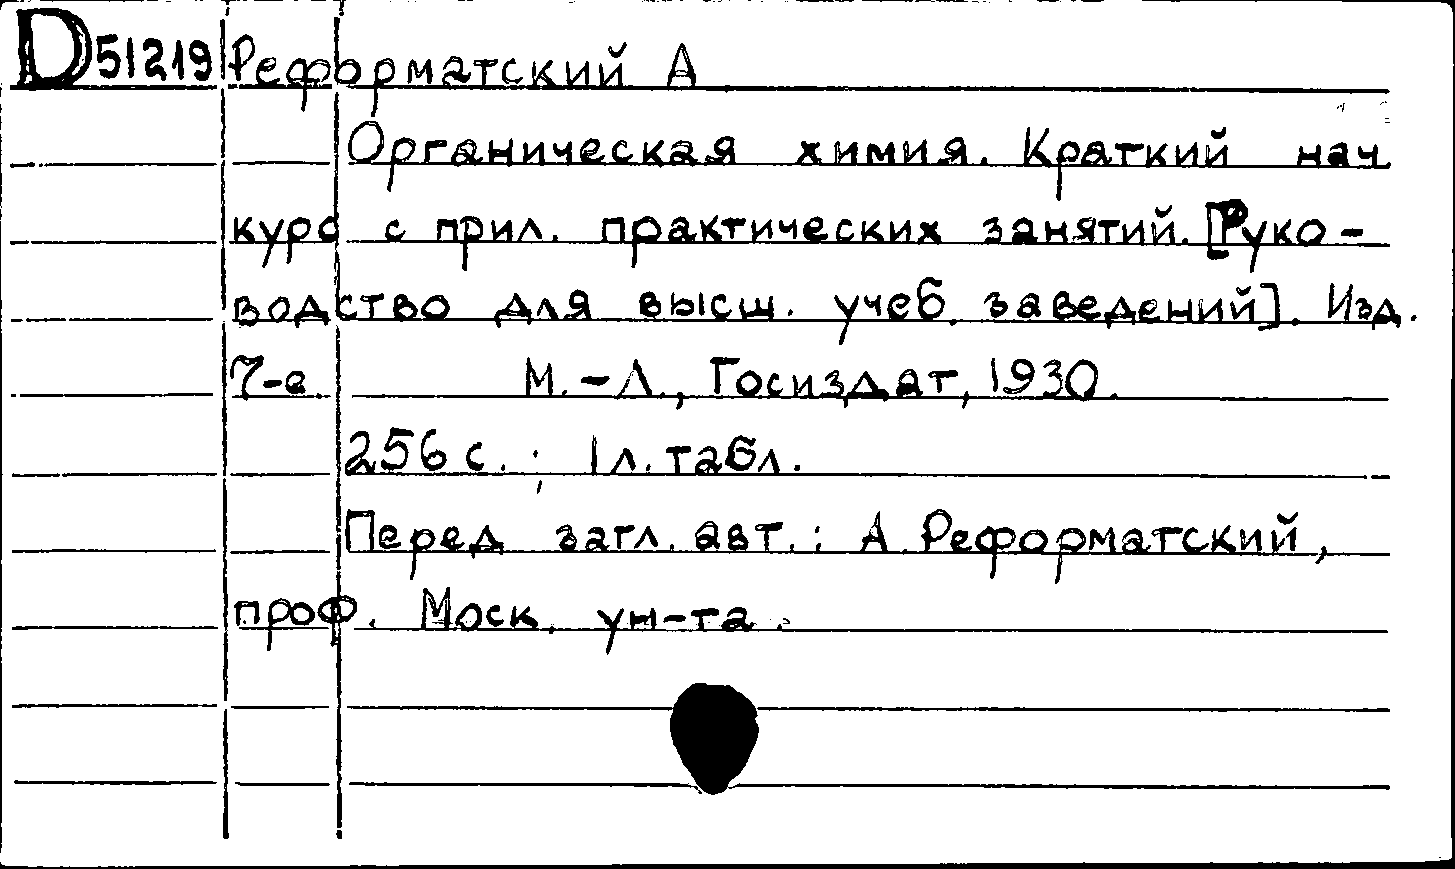 D 51219 Реформатский А
Органическая химия. Краткий нач
курс с прил. практических занятий. [Руко-
водство для высш. учеб. заведений]. Изд.
7-е. М.-Л., Госиздат, 1930.
256 с.; 1 л. табл.
Перед загл. авт.: А. Реформатский,
проф. Моск. ун-та.